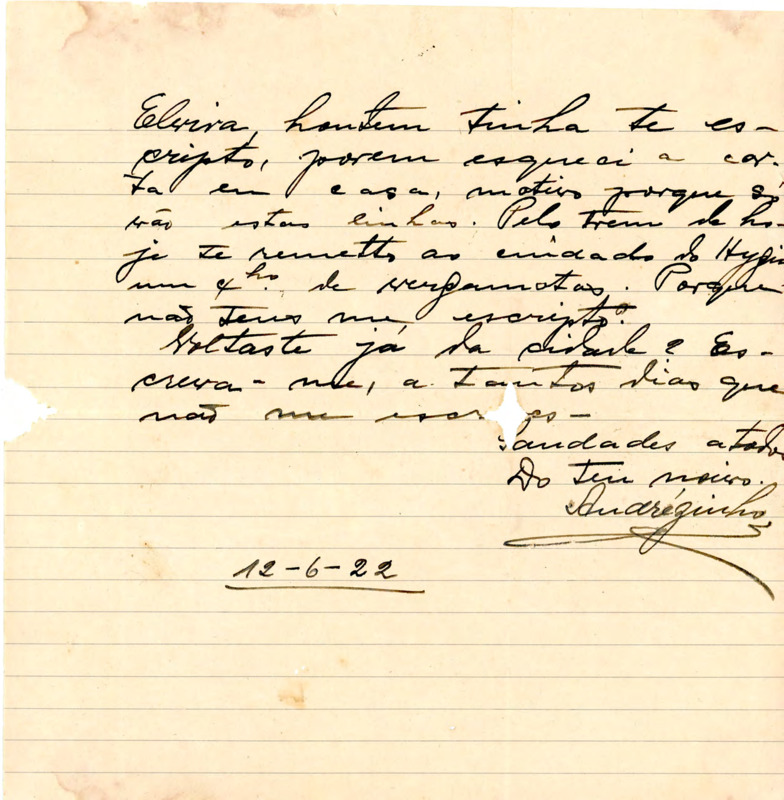 Elvira, hontem tinha te es-
cripto, porem esqueci a car-
ta em casa, motivo porque só
vão estas linhas. Pelo trem de ho-
je te remetto ao cuidado do Hygi
um de vergamotas. Porque
não tens me escripto?
Voltaste já da cidade? Es-
creva-me, a tantos dias que
não me escreves-
Saudades a todos
Do teu noivo.
Andrézinho
12-6-22